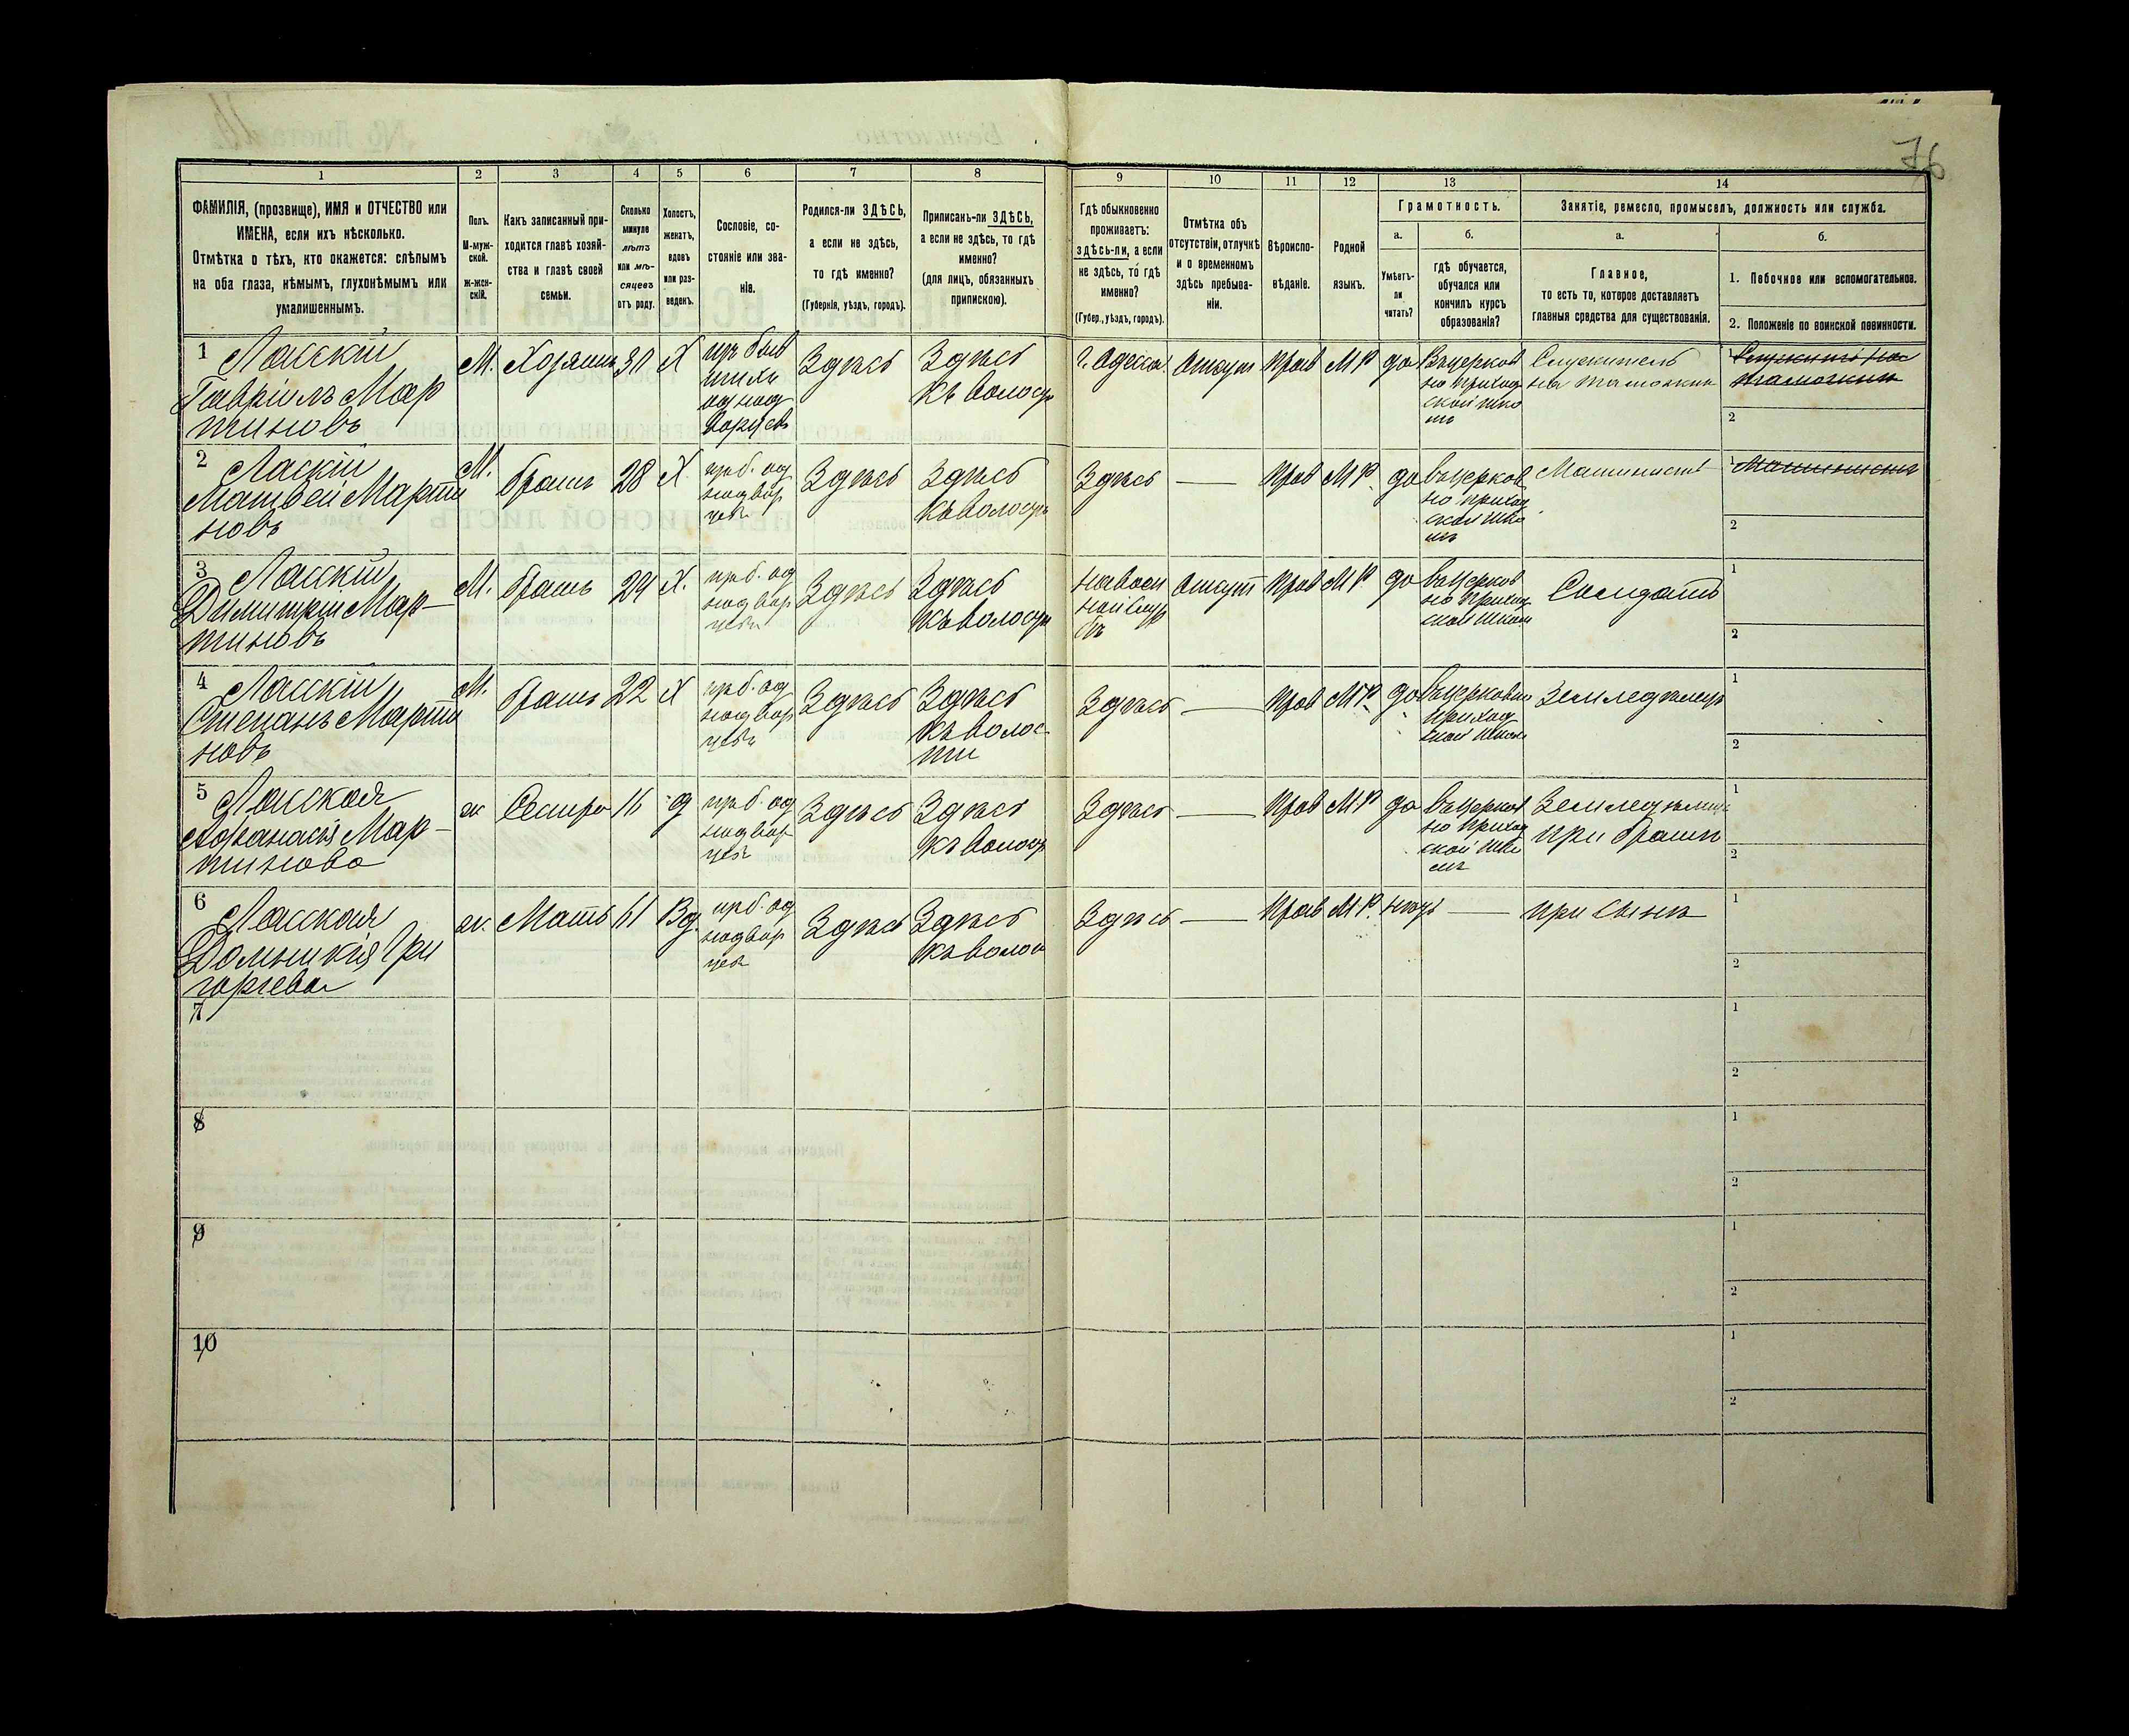 76
1
2
3
4
5
6
7
8
9
10
11
12
13
14
ФАМИЛІЯ, (прозвище), ИМЯ и ОТЧЕСТВО или
ИМЕНА, если ихъ нѣсколько.
Отмѣтка о тѣхъ, кто окажется: слѣпымъ
на оба глаза, нѣмымъ, глухонѣмымъ или
умалишеннымъ.
Полъ.
М-муж-
ской.
ж-жен-
скій.
Какъ записанный при-
ходится главѣ хозяй-
ства и главѣ своей
семьи.
Сколько
минуло
лѣтъ
или мѣ-
сяцевъ
отъ роду.
Холостъ,
женатъ,
вдовъ
или раз-
веденъ.
Сословіе, со-
стояніе или зва-
ніе.
Родился-ли ЗДѢСЬ,
а если не здѣсь,
то гдѣ именно?
(Губернія, уѣздъ, городъ).
Приписанъ-ли ЗДѢСЬ,
а если не здѣсь, то гдѣ
именно?
(для лицъ, обязанныхъ
припискою).
Гдѣ обыкновенно
проживаетъ:
здѣсь-ли, а если
не здѣсь, то гдѣ
именно?
(Губер., уѣздъ, городъ).
Отмѣтка объ
отсутствіи, отлучкѣ
и о временномъ
здѣсь пребыва-
ніи.
Вѣроиспо-
вѣданіе.
Родной
языкъ.
Грамотность.
а.
Умѣетъ-
ли
читать?
б.
гдѣ обучается,
обучался или
кончилъ курсъ
образованія?
Занятіе, ремесло, промыселъ, должность или служба.
а.
Главное,
то есть то, которое доставляетъ
главныя средства для существованія.
б.
1. Побочное или вспомогательное.
2. Положеніе по воинской повинности.
1 Ласкій
Гавріилъ Мар
тиновъ
М.
Хозяинъ
31
Х
Здѣсь
Здѣсь
къ волости
г. Одесса
Отсут
Прав
МР
да
Въ церков
но приход
ской шко
лѣ
Служитель
на таможни
1
2
2 Ласкій
Матвей Марти
новъ
М.
братъ
28
Х
Здѣсь
Здѣсь
къ волости
Здѣсь
—
Прав
МР
да
въ церков
но приход
ской шко
лѣ
Машинистъ
1 Машинистъ
2
3 Ласкій
Димитрій Мар-
тиновъ
М.
братъ
24
Х.
Здѣсь
Здѣсь
къ волости
на воен
ной служ
бѣ
Отсут
Прав
МР
да
въ церков
но приход
ской школ
Солдатъ
1
2
4 Ласкій
Степанъ Марти
новъ
М.
братъ
22
Х
Здѣсь
Здѣсь
къ волос-
ти
Здѣсь
—
Прав
МР
да
въ церковно
приход
ской школ
Земледѣлецъ
1
2
5 Ласкоя
Афанасія Мар-
тинова
ж
Сестра
16
д
Здѣсь
Здѣсь
къ волости
Здѣсь
—
Прав
МР
да
въ церков
но приход
ской шко
лѣ
при братѣ
1
2
6 Ласкоя
Домникія Гри
горіева
ж.
Мать
61
Вд.
Здѣсь
Здѣсь
къ волос
Здѣсь
—
Прав
М.Р.
нѣтъ
—
при сынѣ
1
2
7
1
2
8
1
2
9
1
2
10
1
2